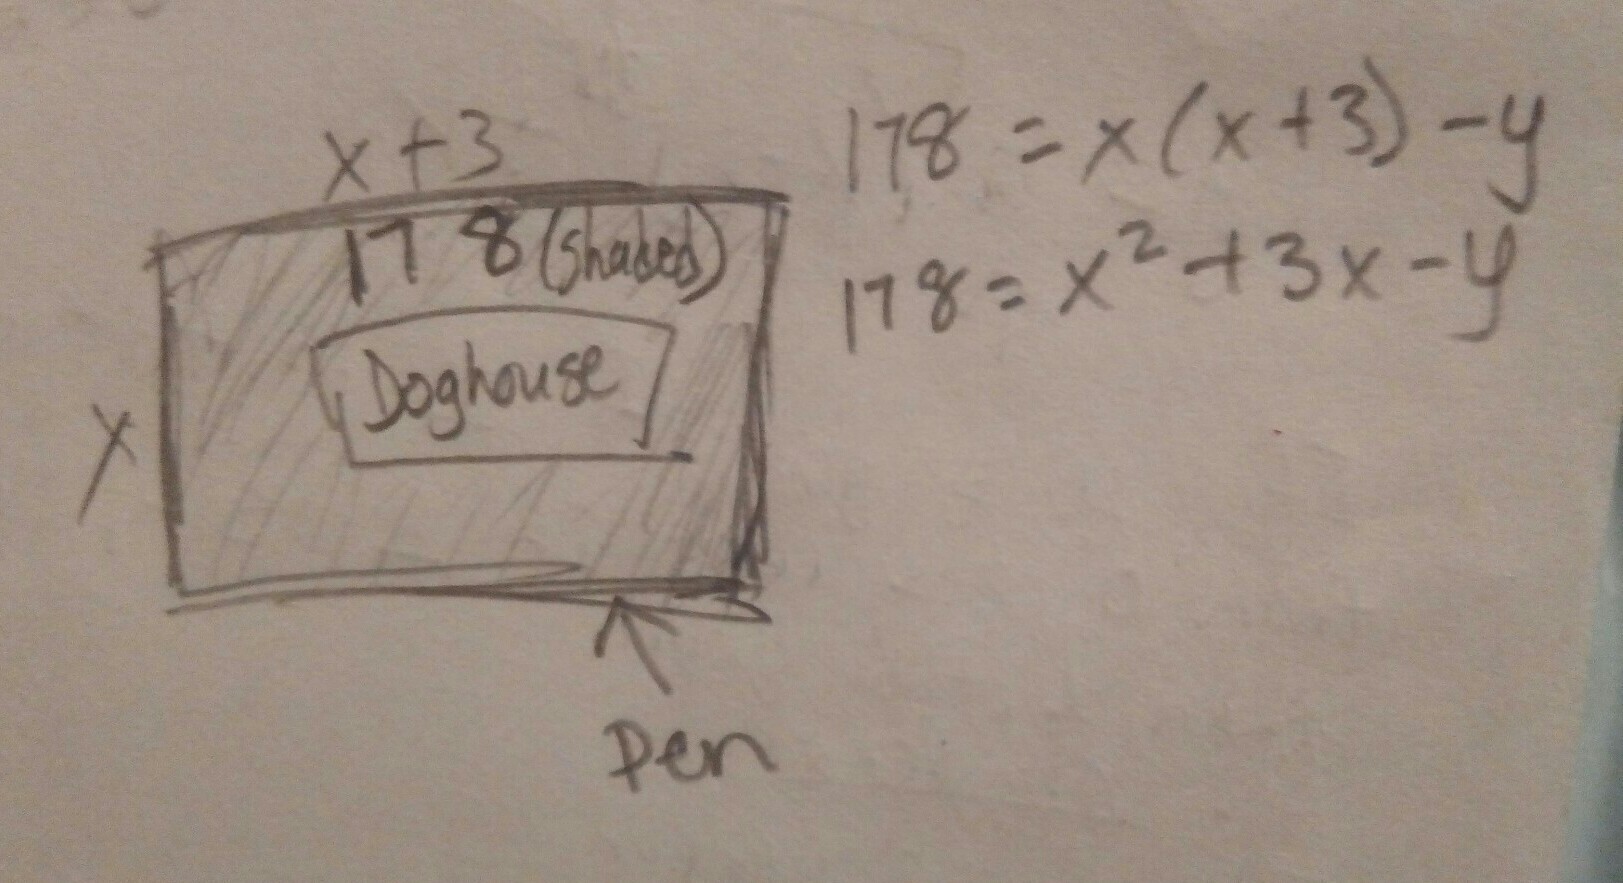 x+3
178 (shaded)
Doghouse
x
Pen
178 = x(x+3) -y
178 = x² +3x -y